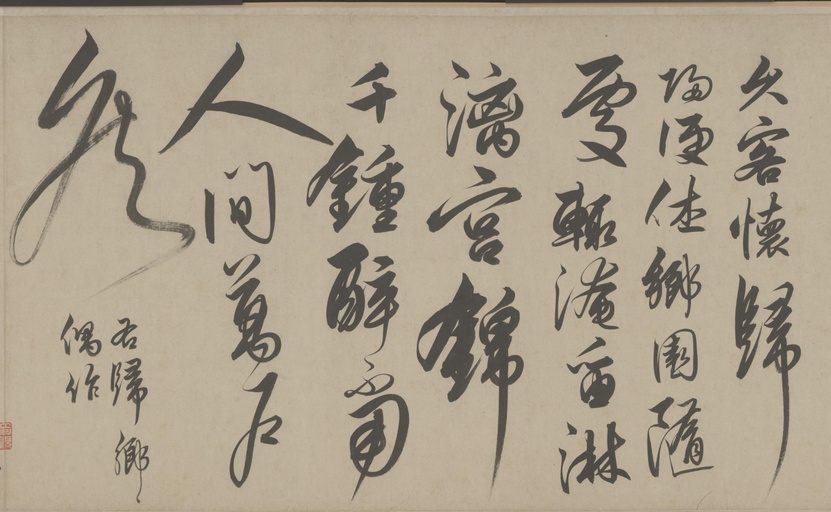 久客懷歸
歸便住鄉園隨
處輒淹留淋
漓宮錦
千鍾醉不用
人間萬戶
侯
右歸鄉
偶作